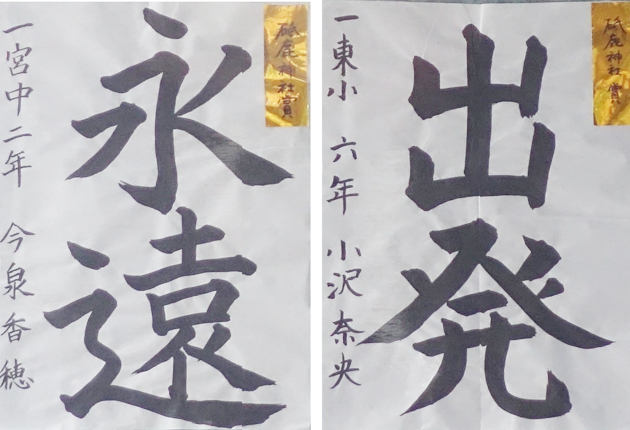 砥鹿神社賞
永遠
一宮中二年 今泉香穂
砥鹿神社賞
出発
一東小 六年 小沢奈央